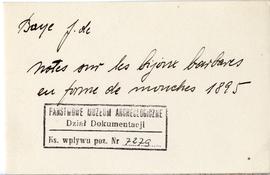 Baye J. de
notes sur les bijoux barbares
en forme de mouches 1895
PAŃSTWOWE MUZEUM ARCHEOLOGICZNE
Dział Dokumentacji
Ks. wpływu poz. Nr 7279